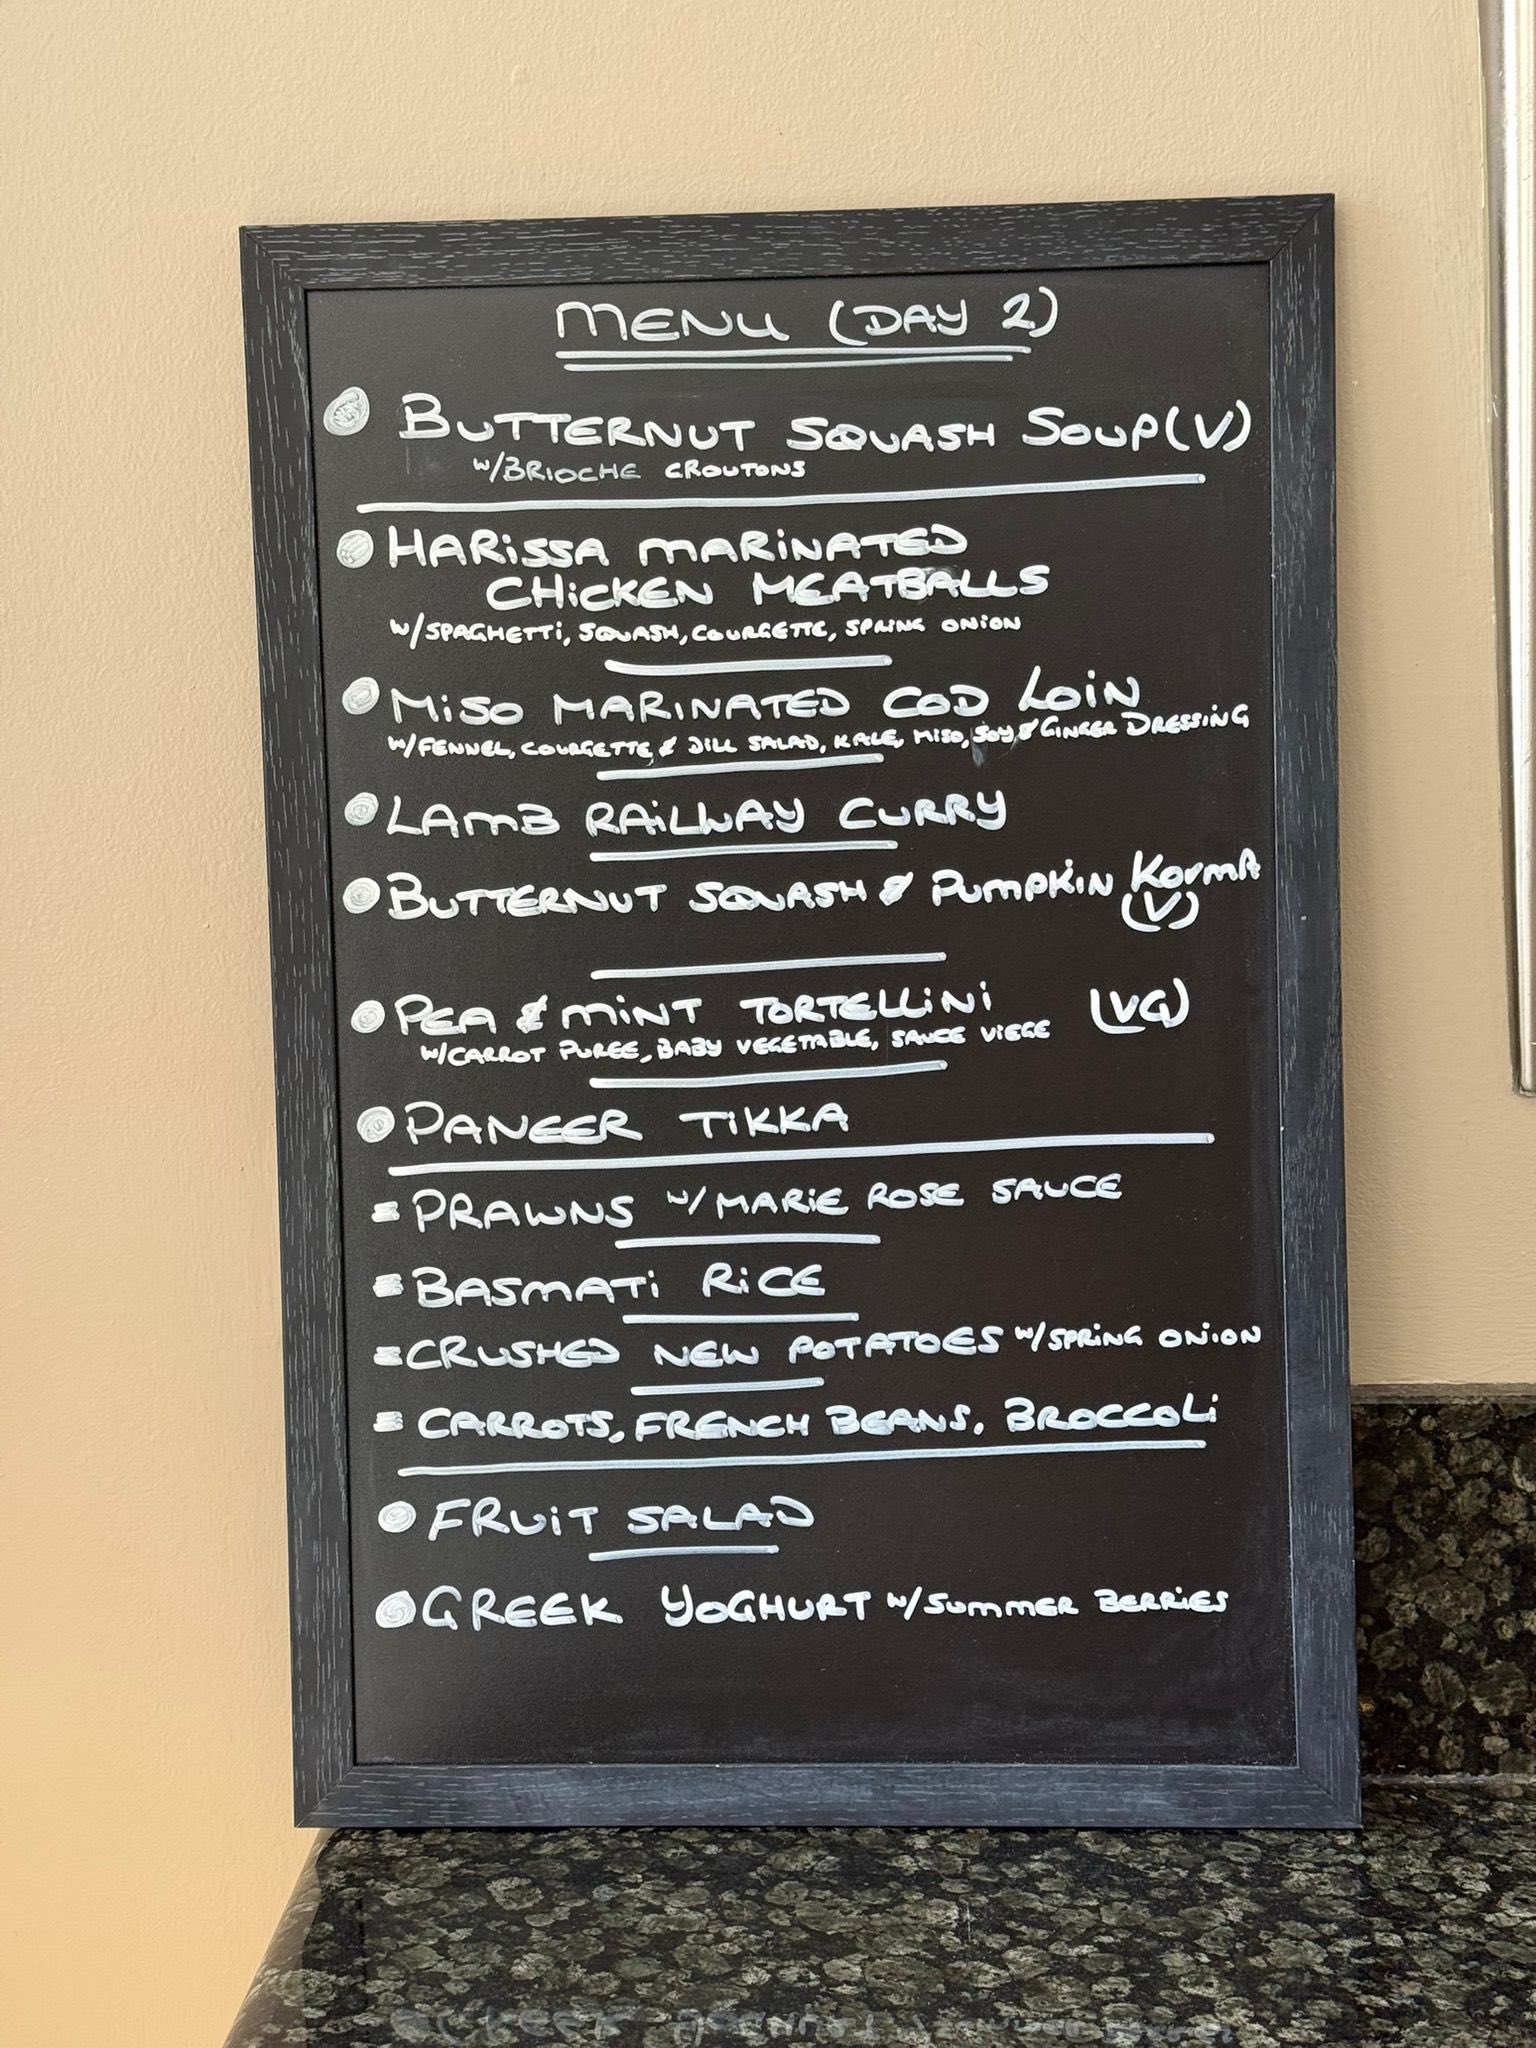 MENU (DAY 2)
BUTTERNUT SQUASH SOUP (V)
W/BRIOCHE CROUTONS
HARISSA MARINATED
CHICKEN MEATBALLS
W/SPAGHETTI, SQUASH, COURGETTE, SPRING ONION
MISO MARINATED COD LOIN
W/FENNEL, COURGETTE & DILL SALAD, KALE, MISO, SOY & GINGER DRESSING
LAMB RAILWAY CURRY
BUTTERNUT SQUASH & PUMPKIN KORMA
(V)
PEA & MINT TORTELLINI (VG)
W/CARROT PUREE, BABY VEGETABLE, SAUCE VIEGE
PANEER TIKKA
PRAWNS W/MARIE ROSE SAUCE
BASMATI RICE
CRUSHED NEW POTATOES W/SPRING ONION
CARROTS, FRENCH BEANS, BROCCOLI
FRUIT SALAD
GREEK YOGHURT W/SUMMER BERRIES